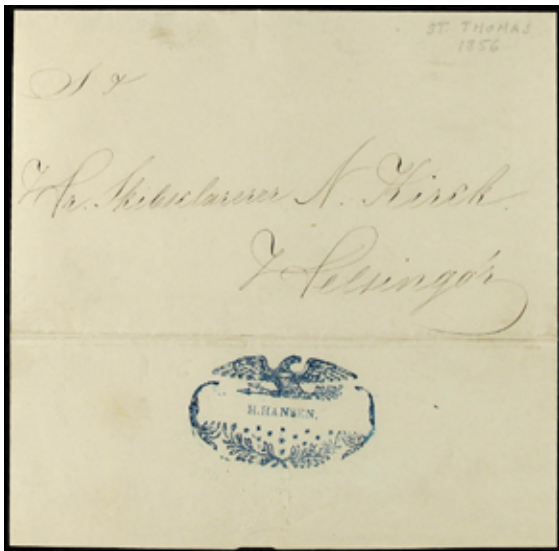 ST. THOMAS
1856
S. T.
Hr. Skibsclarerer N. Kirck.
Helsingör
H. HANSEN.